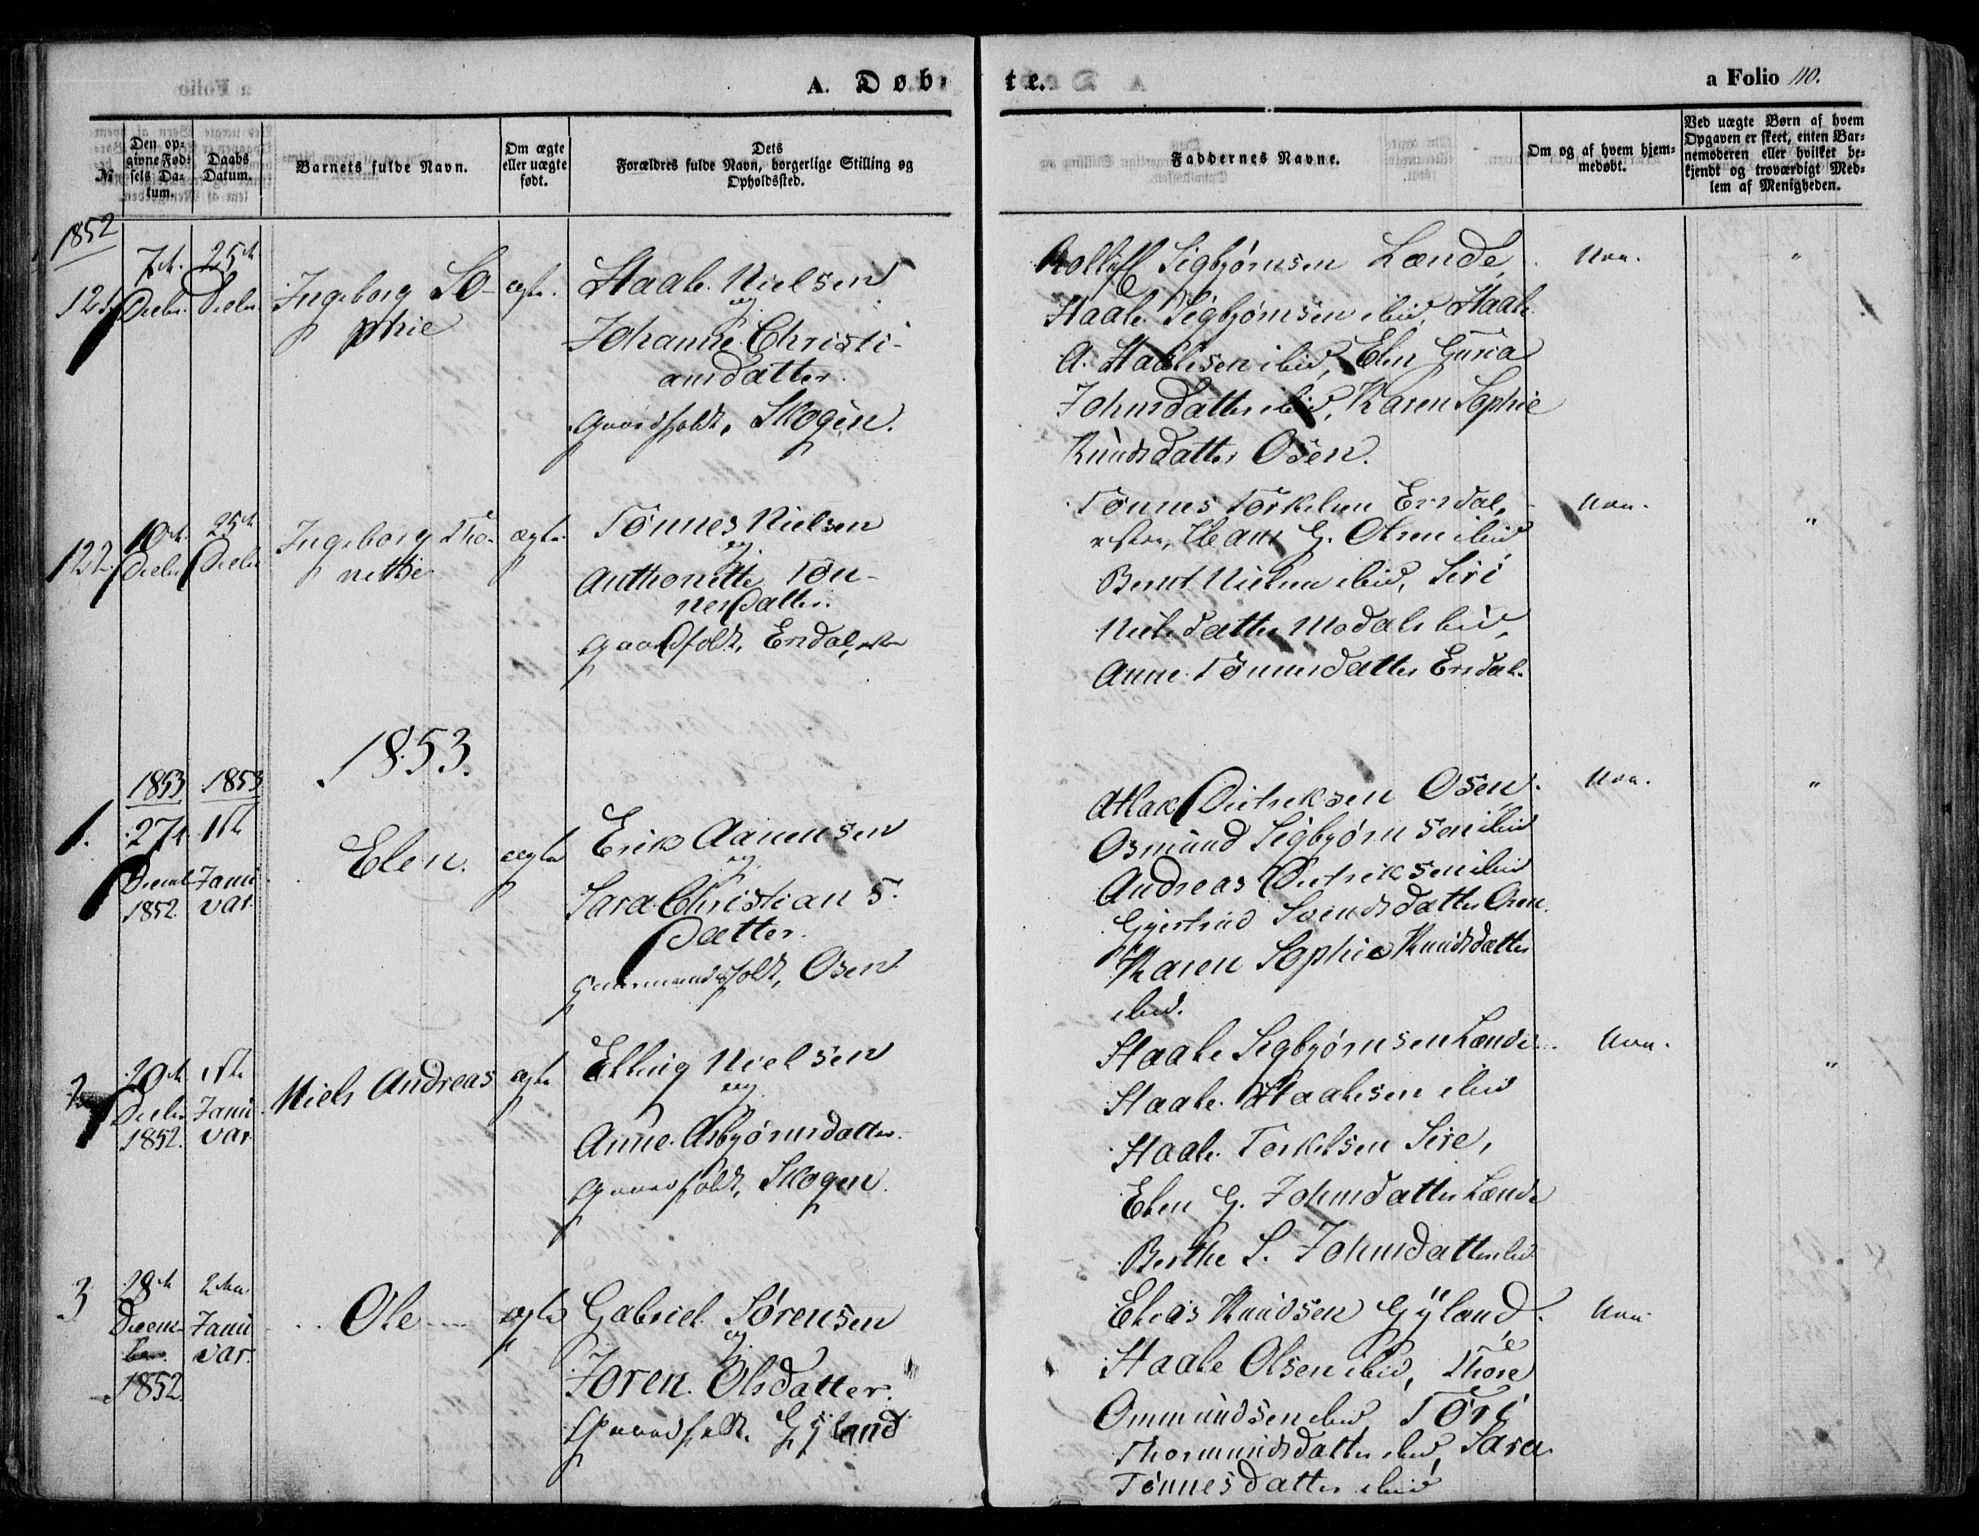 A. Døb-
te.
a Folio 110.
№
Den op-
givne Fød-
sels Da-
tum.
Daabs
Datum.
Barnets fulde Navn.
Om ægte
eller uægte
født.
Dets
Forældres fulde Navn, borgerlige Stilling og
Opholdssted.
Faddernes Navne.
Om og af hvem hjem-
medøbt.
Ved uægte Børn af hvem
Opgaven er skeet, enten Bar-
nemoderen eller hvilket be-
kjendt og troværdigt Med-
lem af Menigheden.
1852
121.
7de
Decbr
25de
Decbr
Ingeborg So-
phie
ægte.
Staale Nielsen
og
Johanne Christi-
ansdatter.
Gaardfolk, Skogen.
Sigbjørnsen Lænde,
Staale Sigbjørnsen ibid, Staale
A. Staalesen ibid, Elen Guria
Johnsdatter ibid, Karen Sophie
Knudsdatter Osen.
"
122.
10de
Decbr
25de
Decbr
Ingeborg Tho-
nettie
ægte
Tønnes Nielsen
og
Anthonette Tøn-
nesdatter.
Gaardfolk, Ersdal,
Tønnes Torkelsen Ersdal,
Hans G. Olsen ibid
Bernt Nielsen ibid, Siri
Nielsdatter Modal ibid,
Anne Tønnesdatter Ersdal.
"
1853.
1853
1853
1.
27de
Decemb
1852.
1ste
Janu
var
Elen.
ægte
Erik Aanensen
og
Sara Christians-
datter.
folk, Osen
Atlak Didriksen Osen.
Osmund Sigbjørnsen ibid
Andreas Didriksen ibid
Gjertrud Svendsdatter Osen.
Karen Sophie Knudsdatter
ibid.
"
2.
20de
Decbr
1852.
1ste
Janu
var
Niels Andreas
ægte
Elling Nielsen
og
Anne Asbjørnsdatter.
Gaardfolk, Skogen.
Staale Sigbjørnsen Lænde
Staale Staalesen ibid
Staale Torkelsen Sire,
Elen G. Johnsdatter Lænde
Berthe S. Johnsdatter ibid
"
3
28de
Decem-
ber.
1852.
2den
Janu
var.
Ole
ægte
Gabriel Sørensen
og
Joren Olsdatter.
Gaardfolk. Gyland
Elias Knudsen Gyland.
Staale Olsen ibid, Thore
Ommundsen ibid Tori
Thormundsdatter ibid, Sara
Tønnesdatter ibid